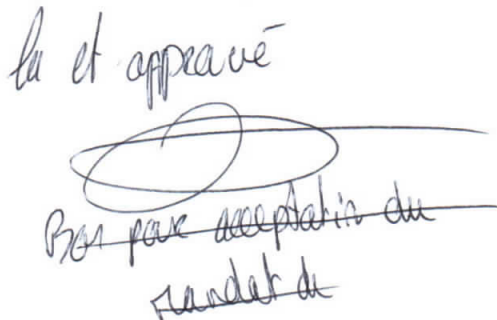 lu et approuvé
Bon pour acceptation du
mandat de